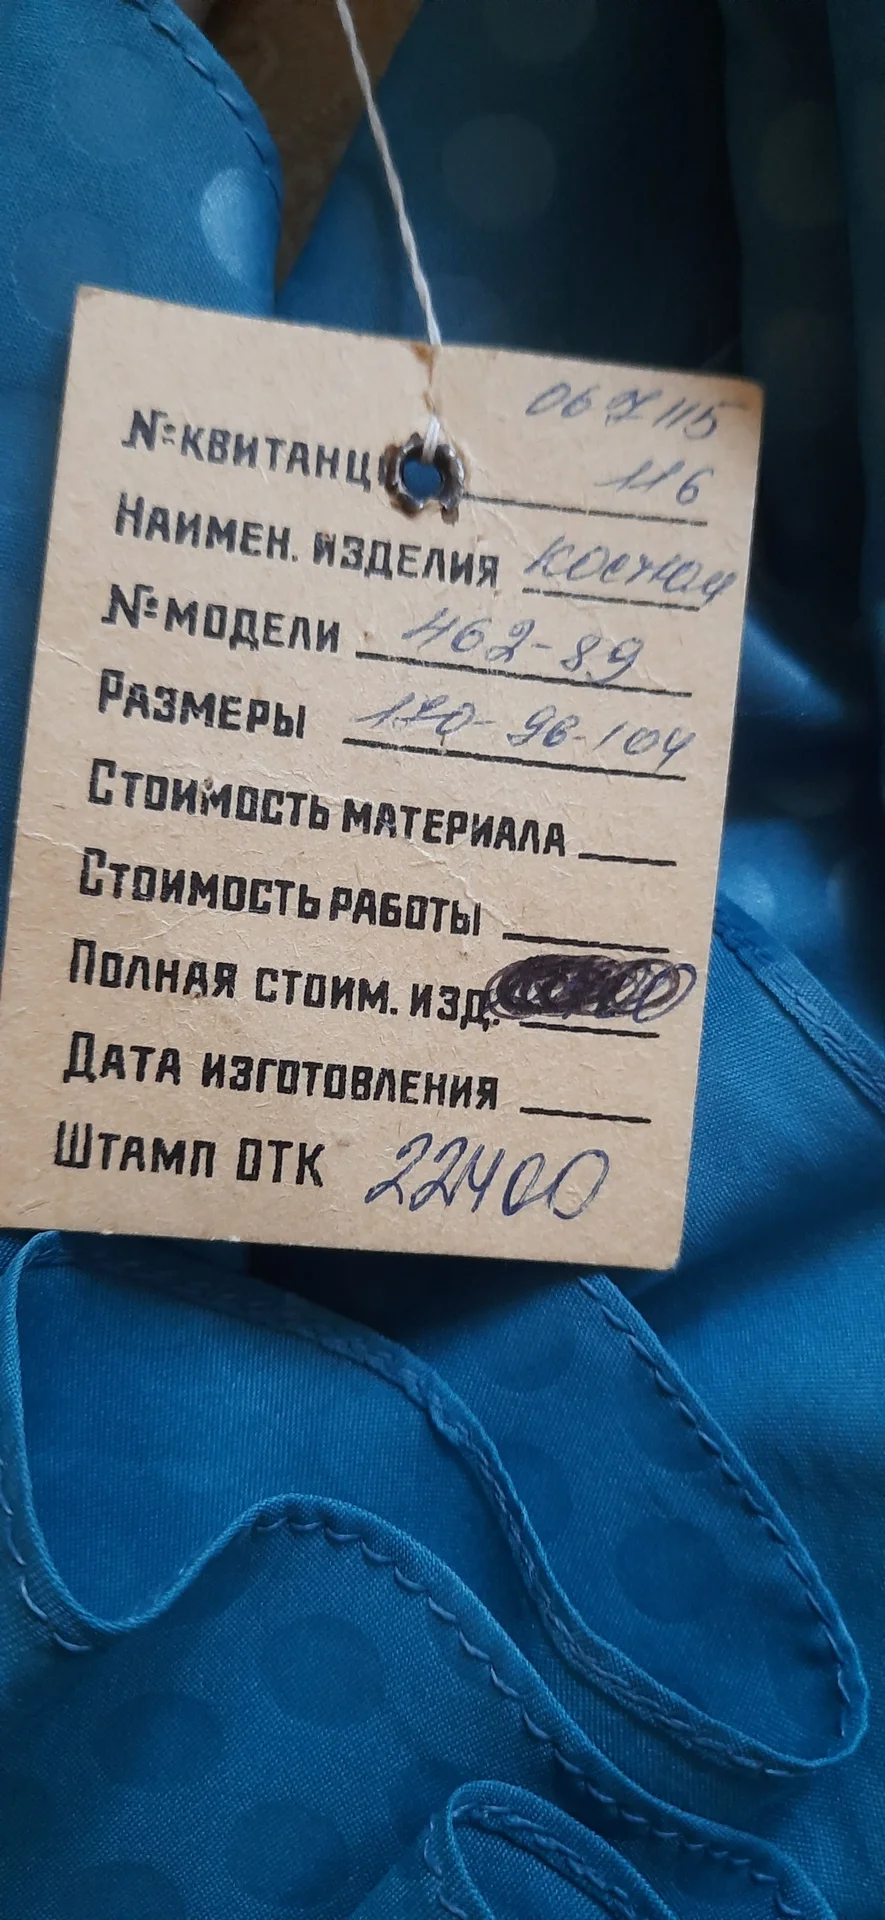 067115
№ КВИТАНЦ 116
НАИМЕН. ИЗДЕЛИЯ костюм
№ МОДЕЛИ 462-89
РАЗМЕРЫ 170-96-104
СТОИМОСТЬ МАТЕРИАЛА
СТОИМОСТЬ РАБОТЫ
ПОЛНАЯ СТОИМ. ИЗД.
ДАТА ИЗГОТОВЛЕНИЯ
ШТАМП ОТК 22400